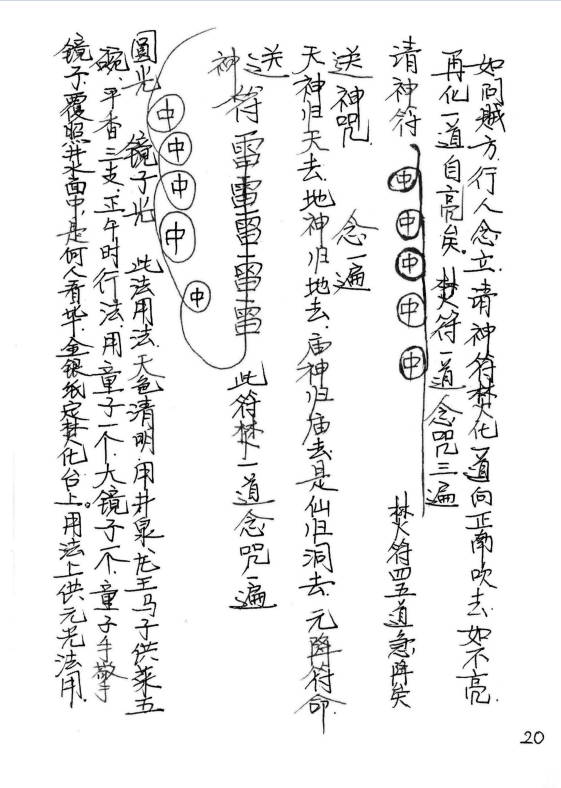 如问贼方.行人念立.请神符焚化一道向正南吹去.如不亮.
再化一道自亮矣.焚符一道念咒三遍
清神符 中中中中中 焚符四五道急降矣
送神咒. 念一遍
天神归天去.地神归地去.庙神归庙去.是仙归洞去.元降符命.
送神符 雷雷雷雷雷 此符焚一道念咒一遍
中中中中中
圆光 镜子光 此法用法.天色清明.用井泉.龙王马子供菜五
碗.平香三支.正午时行法.用童子一个.大镜子一个.童子手擎
镜子覆照井水面中.是何人看毕.金银纸定焚化台上。用法上供元光法用.
20